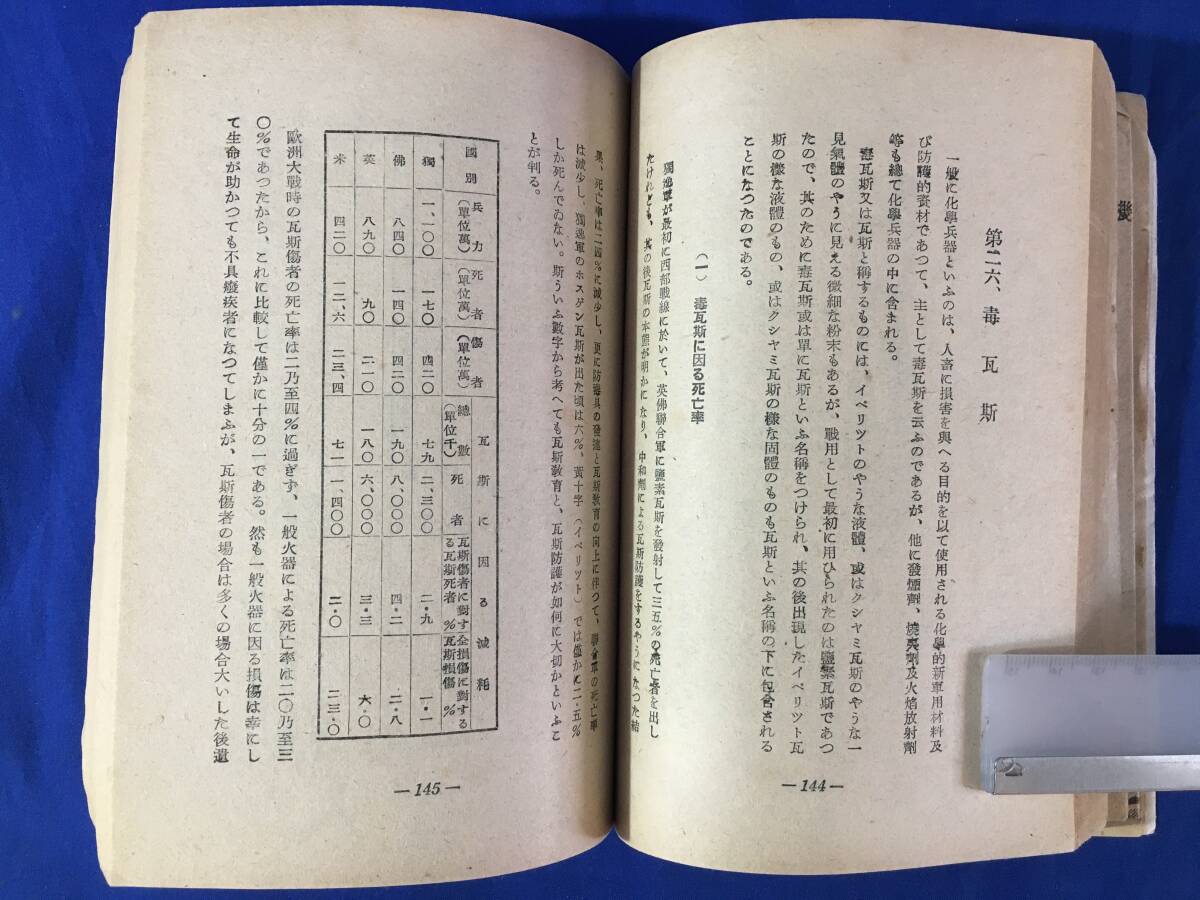 第二六、毒瓦斯
一般に化學兵器といふのは、人畜に損害を與へる目的を以て使用される化學的新軍用材料及
び防護的資材であつて、主として毒瓦斯を云ふのであるが、他に發煙劑、燒夷劑及火焰放射劑
等も總て化學兵器の中に含まれる。
毒瓦斯又は瓦斯と稱するものには、イペリツトのやうな液體、或はクシヤミ瓦斯のやうな一
見氣體のやうに見える微細な粉末もあるが、戰用として最初に用ひられたのは鹽素瓦斯であつ
たので、其のために毒瓦斯或は單に瓦斯といふ名稱をつけられ、其の後出現したイペリツト瓦
斯の樣な液體のもの、或はクシヤミ瓦斯の樣な固體のものも瓦斯といふ名稱の下に包含される
ことになつたのである。
(一) 毒瓦斯に因る死亡率
獨逸軍が最初に西部戰線に於いて、英佛聯合軍に鹽素瓦斯を發射して三五%の死亡者を出し
たけれども、其の後瓦斯の本態が明かになり、中和劑による瓦斯防護をするやうになつた結
—144—
果、死亡率は二四%に減少し、更に防毒具の發達と瓦斯敎育の向上に伴つて、聯合軍の死亡率
は減少し、獨逸軍のホスゲン瓦斯が出た頃は六%、黃十字(イペリツト)では僅かに二・五%
しか死んでゐない。斯ういふ數字から考へても瓦斯敎育と、瓦斯防護が如何に大切かといふこ
とが判る。
國別 兵力(單位萬) 死者(單位萬) 傷者(單位萬) 瓦斯に因る減耗 總數(單位千) 死者 瓦斯傷者に對する瓦斯死者% 全損傷に對する瓦斯損傷%
獨 一、一〇〇 一七〇 四二〇 七九 二、三〇〇 二・九 一・一
佛 八四〇 一四〇 四二〇 一九〇 八、〇〇〇 四・二 二・八
英 八九〇 九〇 二一〇 一八〇 六、〇〇〇 三・三 六・〇
米 四二〇 一二、六 二三、四 七一 一、四〇〇 二・〇 三三・〇
歐洲大戰時の瓦斯傷者の死亡率は二乃至四%に過ぎず、一般火器による死亡率は二〇乃至三
〇%であつたから、これに比較して僅かに十分の一である。然も一般火器に因る損傷は幸にし
て生命が助かつても不具癈疾者になつてしまふが、瓦斯傷者の場合は多くの場合大いした後遺
—145—